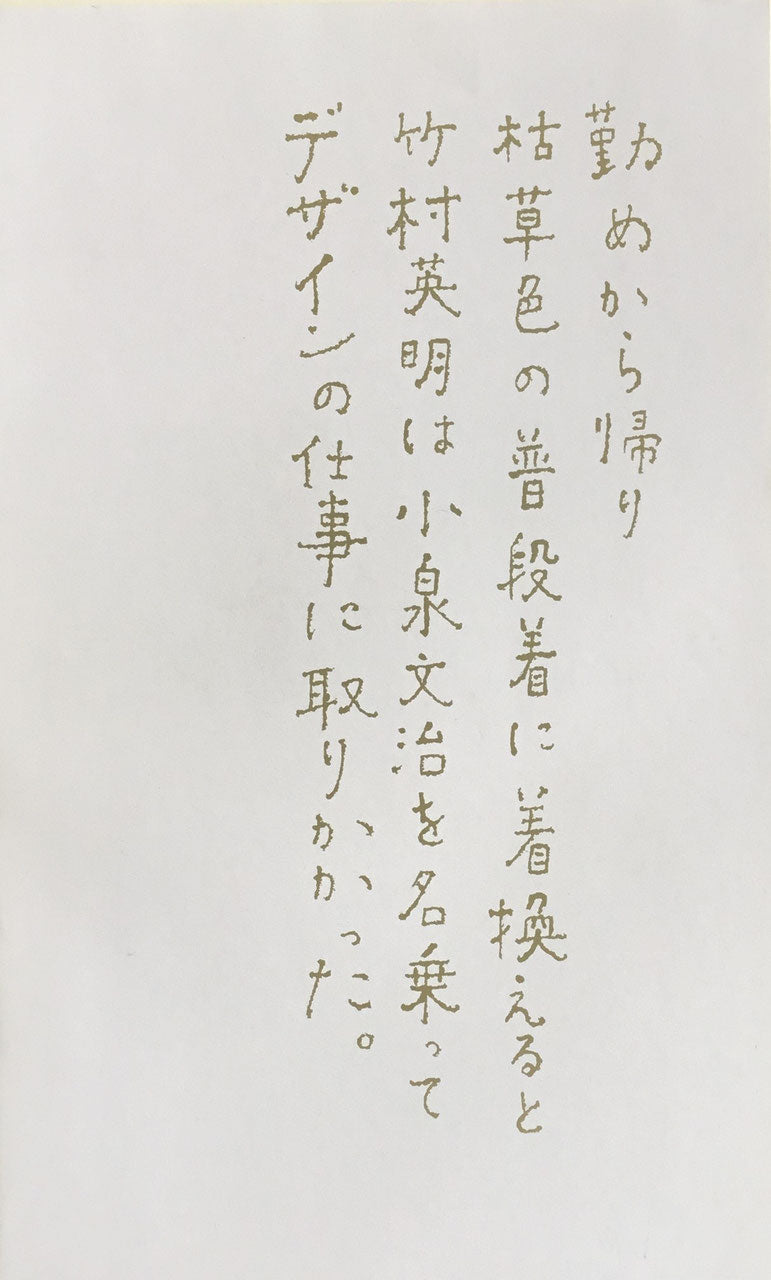 勤めから帰り
枯草色の普段着に着換えると
竹村英明は小泉文治を名乗って
デザインの仕事に取りかかった。